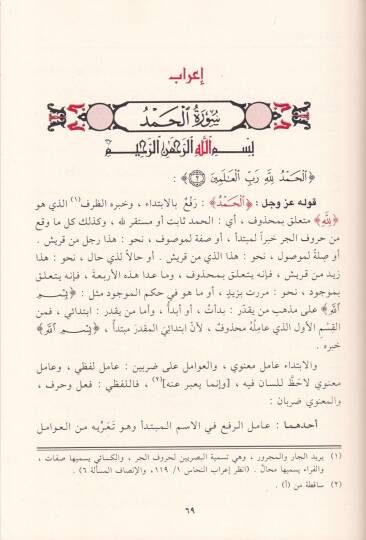 إعراب
سُورَةُ الحَمْدُ
بِسْمِ اللهِ الرَّحْمٰنِ الرَّحِيْمِ
﴿الْحَمْدُ لِلَّهِ رَبِّ الْعَالَمِينَ (٢)﴾ :
قوله عز وجل : ﴿الْحَمْدُ﴾ : رَفْعٌ بالابتداء ، وخبره الظرف(١) الذي هو
﴿لِلَّهِ﴾ متعلق بمحذوف ، أي : الحمد ثابت أو مستقر لله ، وكذلك كل ما وقع
من حروف الجر خبراً لمبتدأ ، أو صفة لموصوف ، نحو : هذا رجل من قريش .
أو صِلةً لموصول ، نحو : هذا الذي من قريش . أو حالاً لذي حال ، نحو : هذا
زيد من قريش ، فإنه يتعلق بمحذوف ، وما عدا هذه الأربعة ، فإنه يتعلق
بموجود ، نحو : مررت بزيدٍ ، أو ما هو في حكم الموجود مثل : ﴿بِسْمِ
اللَّهِ﴾ على مذهب من يقدّر : بدأتُ ، أو أبدأ ، وأما من يقدر : ابتدائي ، فمن
القِسْمِ الأول الذي عامِلُه محذوفٌ ، لأنّ ابتدائيَ المقدرَ مبتدأ ، ﴿بِسْمِ اللَّهِ﴾
خبره .
والابتداء عامل معنوي ، والعوامل على ضربين : عامل لفظي ، وعامل
معنوي لاحَظَّ للسان فيه ، [وإنما يعبر عنه](٢) ، فاللفظي : فعل وحرف ،
والمعنوي ضربان :
أحدهما : عامل الرفع في الاسم المبتدأ وهو تَعَرِّيه من العوامل
(١) يريد الجار والمجرور ، وهي تسمية البصريين لحروف الجر ، والكسائي يسميها صفات ،
والفراء يسميها محالّ . (انظر إعراب النحاس ١/ ١١٩، والإنصاف المسألة ٦) .
(٢) ساقطة من (أ) .
٦٩